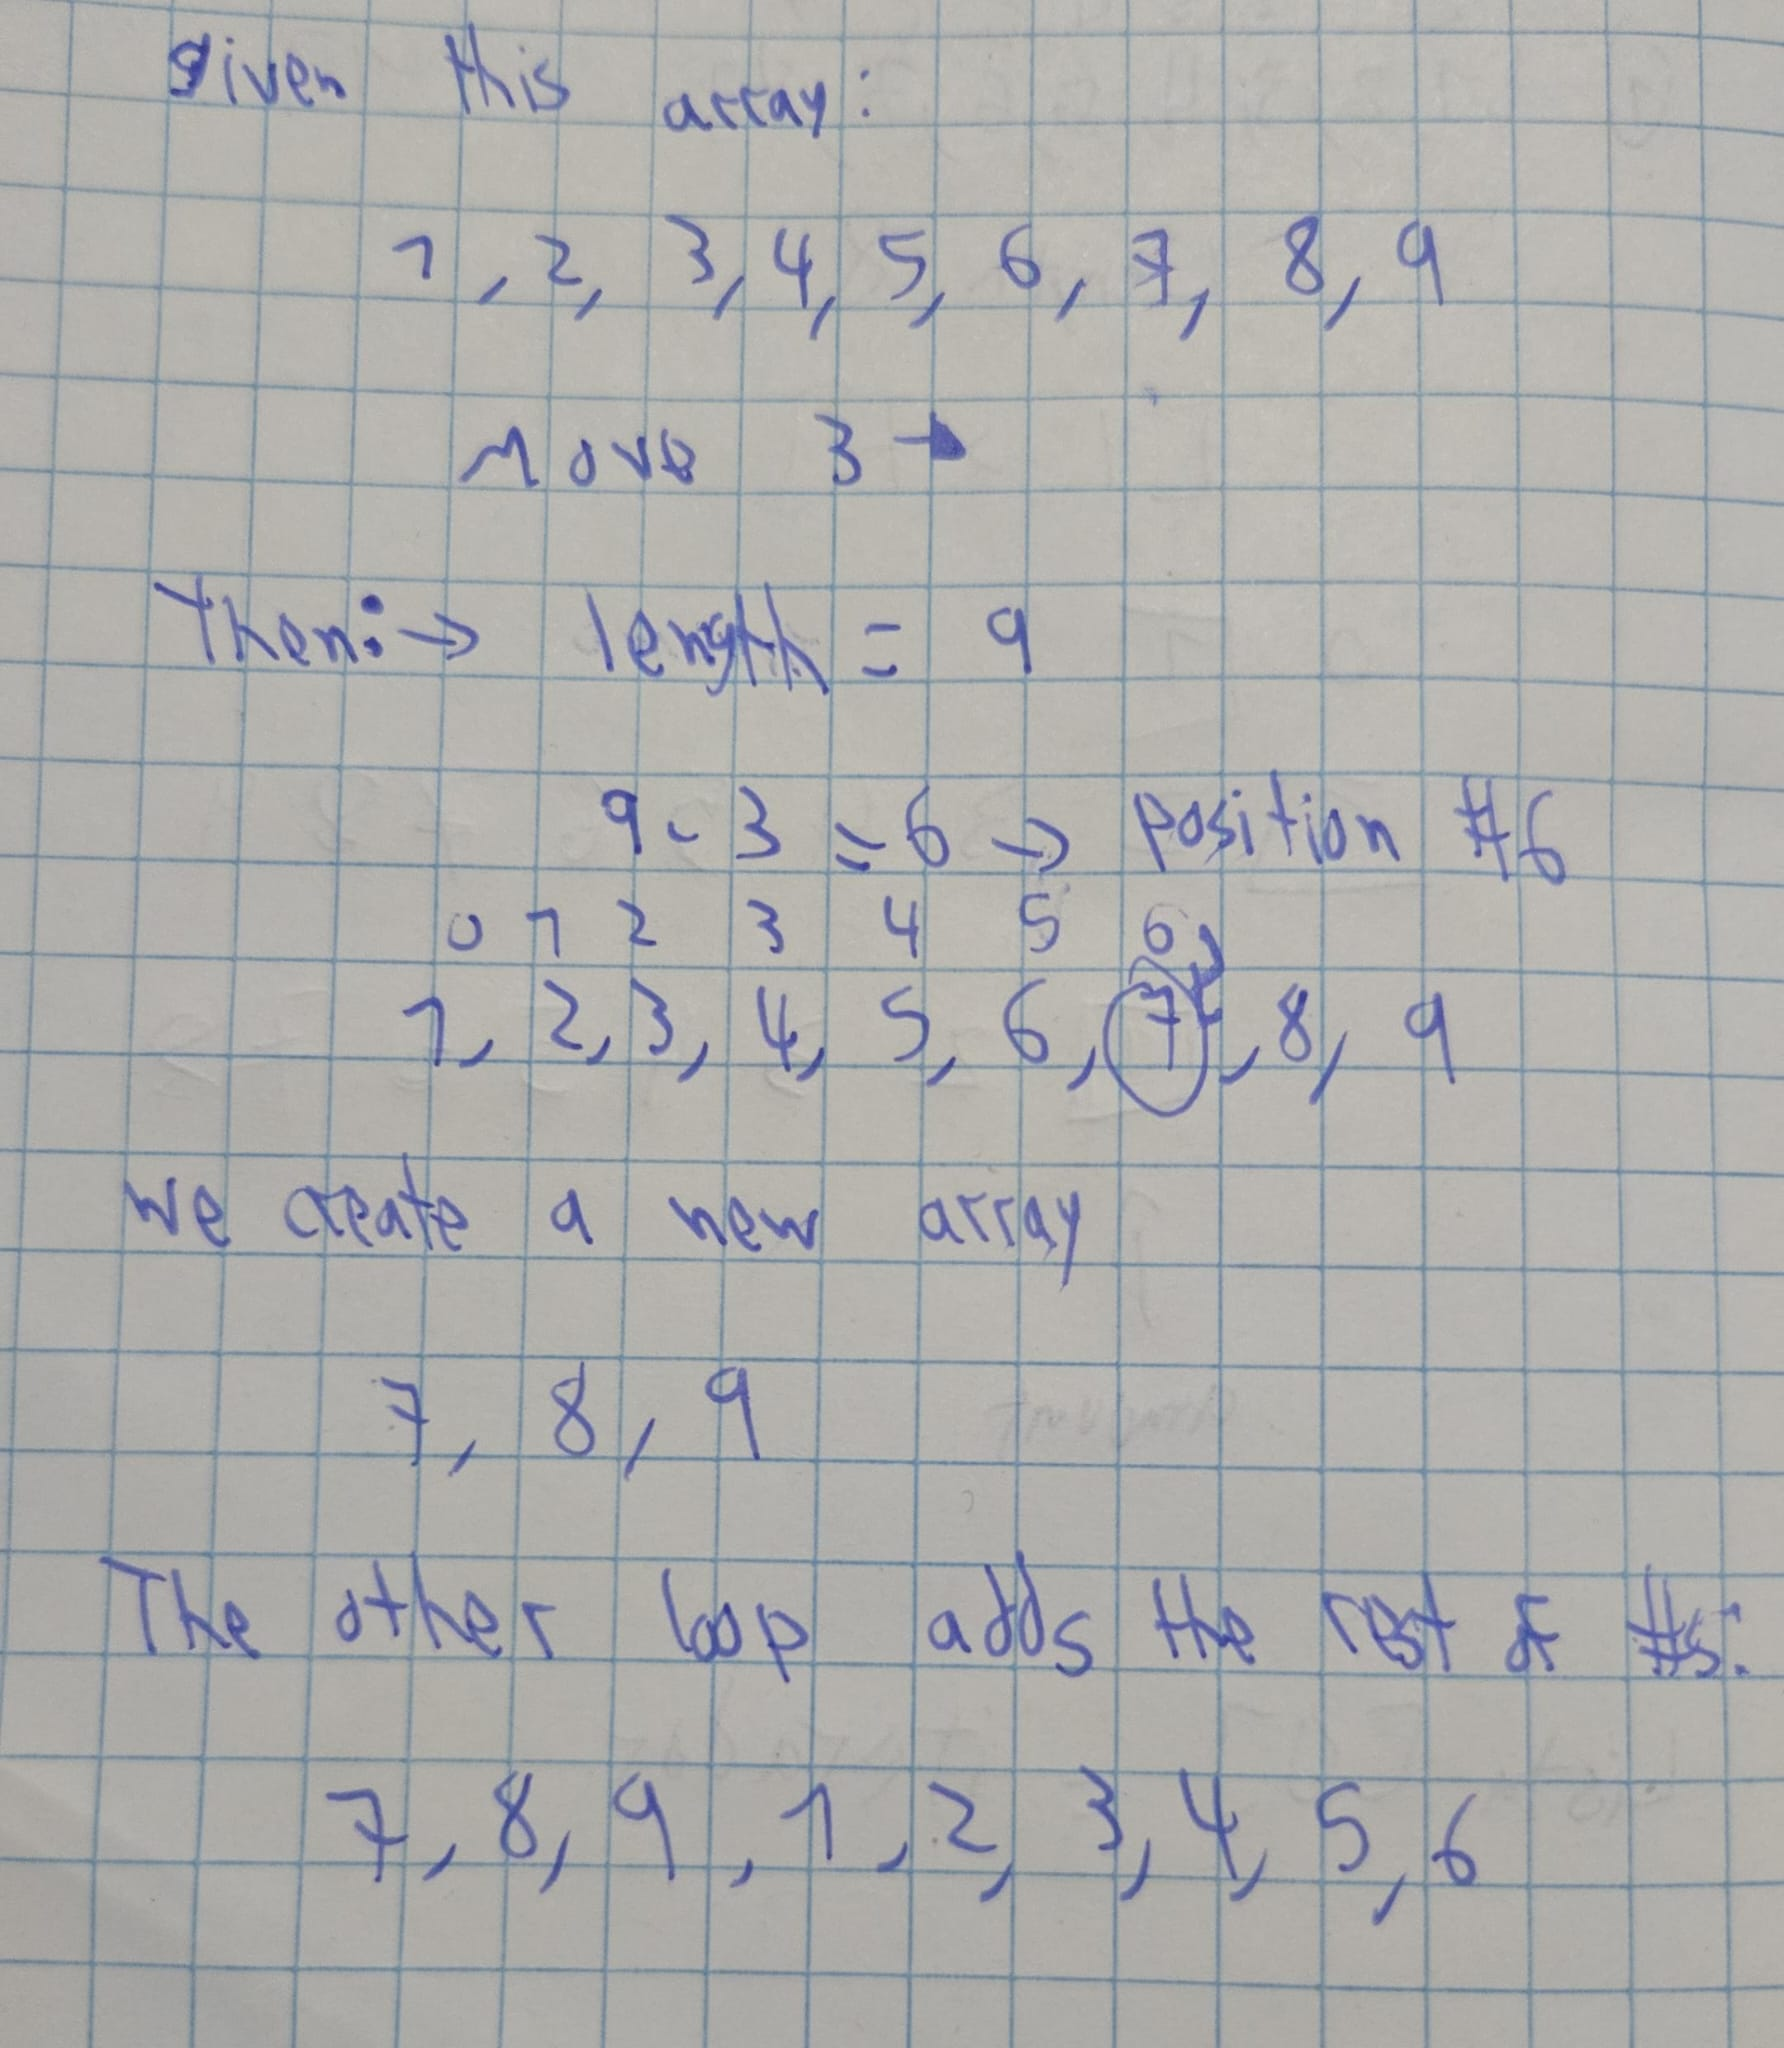 Given this array:
1, 2, 3, 4, 5, 6, 7, 8, 9
Move 3 →
Then: → length = 9
9 - 3 = 6 → position #6
0 1 2 3 4 5 6
1, 2, 3, 4, 5, 6, 7, 8, 9
we create a new array
7, 8, 9
The other loop adds the rest of #s:
7, 8, 9, 1, 2, 3, 4, 5, 6